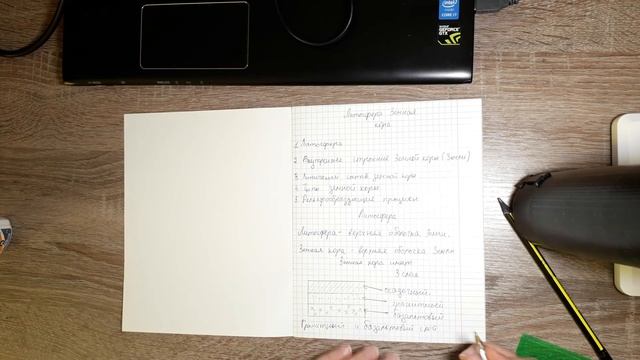 Литосфера Земная
кора
1. Литосфера
2. Внутреннее строение Земной коры (Земли)
3. Химический состав земной коры
4. Типы земной коры
5. Рельефообразующие процессы
Литосфера
Литосфера - верхняя оболочка Земли.
Земная кора - верхняя оболочка Земли
Земная кора имеет
3 слоя
осадочный
гранитный
базальтовый
Гранитный и базальтовый слой
intel
CORE i7
GEFORCE
GTX